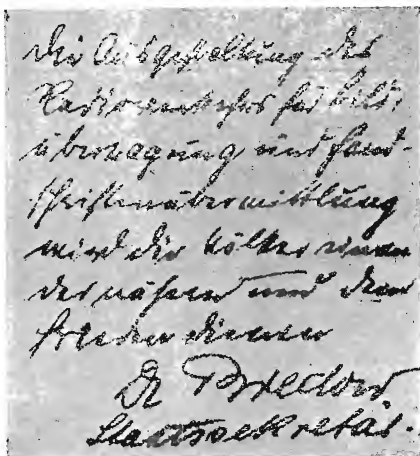 Die Ausgestaltung des
Radioverkehrs für Bild-
übertragung und Hand-
schriftenübermittlung
wird die Völker einan-
der nähern und dem
Frieden dienen
Dr Bredow
Staatssekretär.